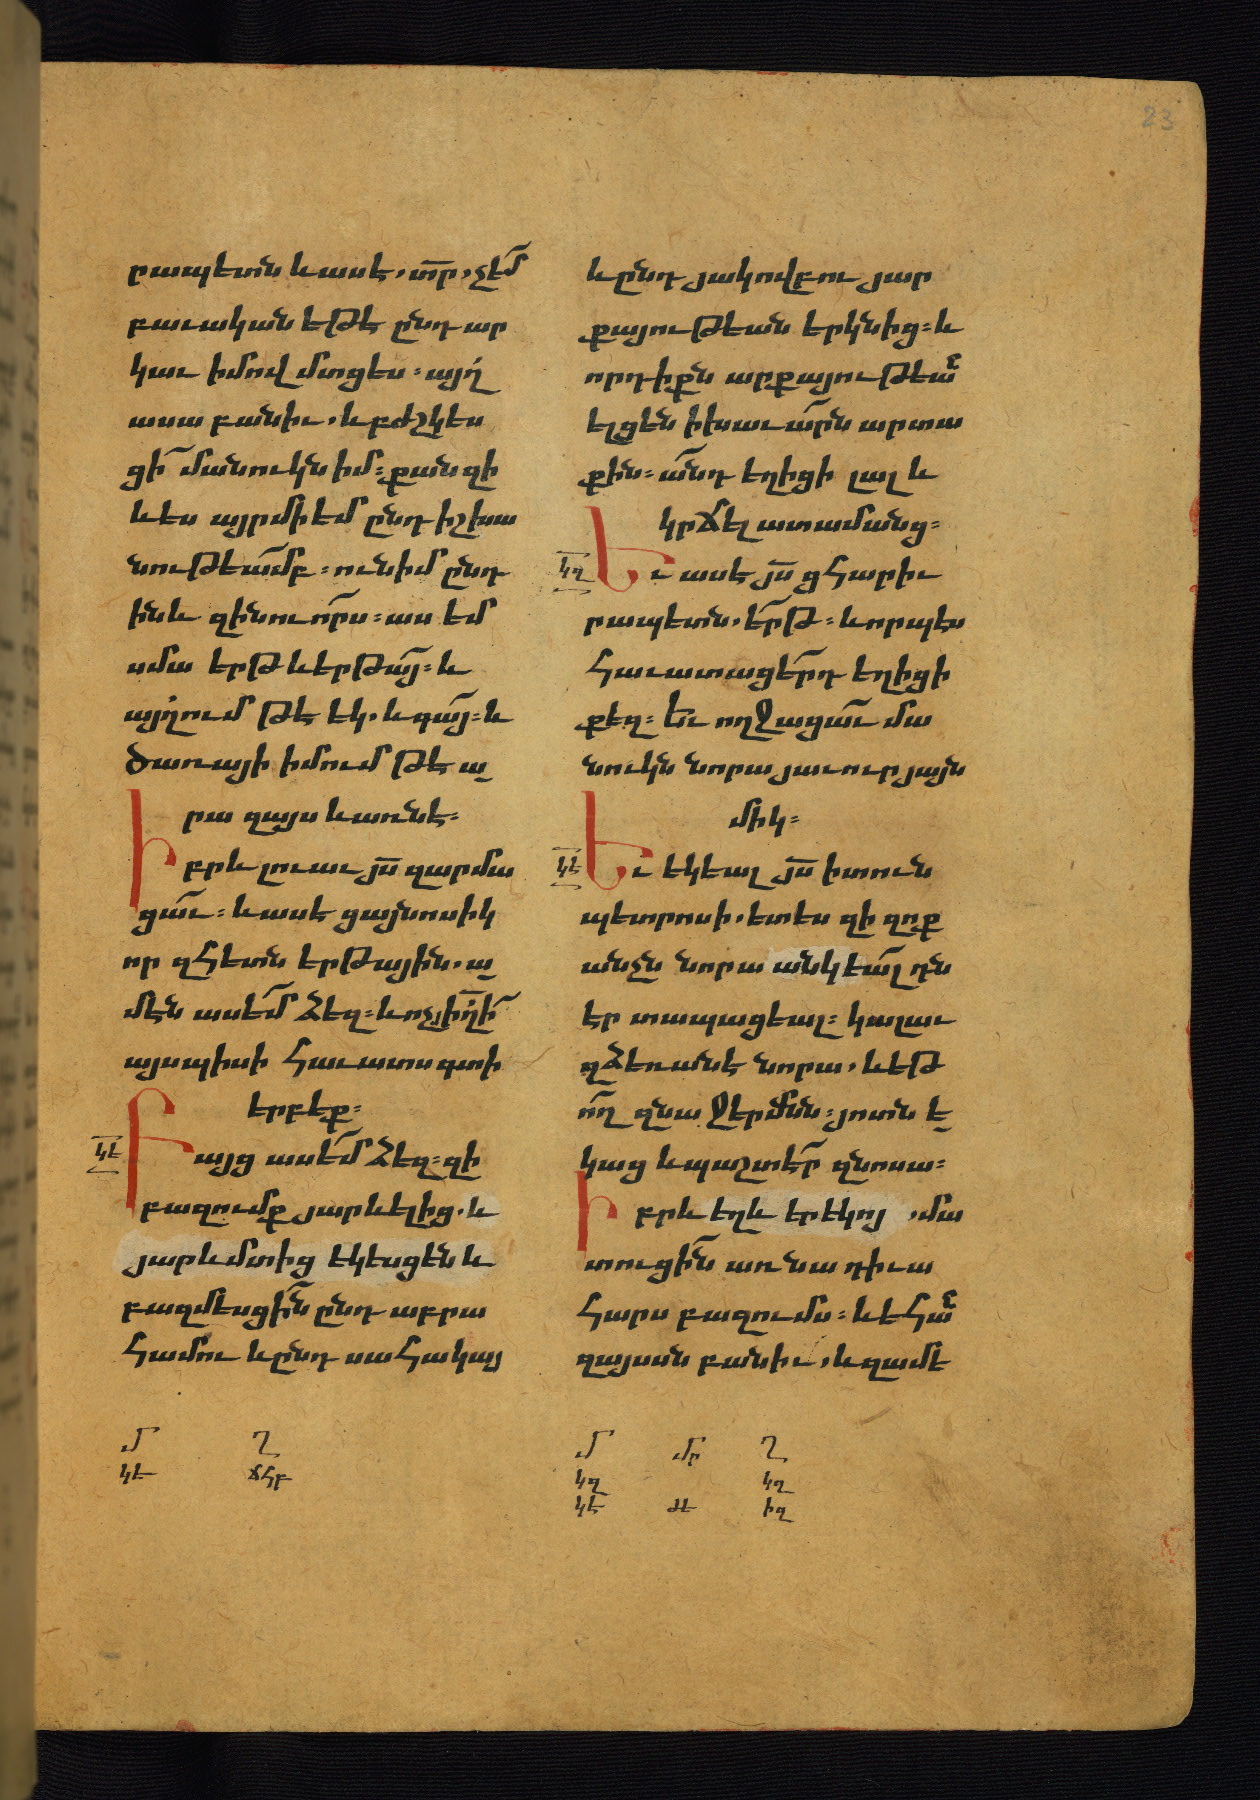 23
րապետն և ասէ, տր, չեմ
բաւական եթէ ընդ ար
կաւ իմով մտցես։ այղ
ասա բանիւ, և բժշկես
ցի մանուկն իմ։ քանզի
և ես այր մի եմ ընդ իշխա
նութեամբ։ ունիմ ընդ
ինև զինուորս։ աս եմ
սմա երթ և երթայ։ և
այղում թէ եկ, և գայ։ և
ծառայի իմում թէ ա
րա զայս և առնէ։
Իբրև լուաւ յս զարմա
ցաւ։ և ասէ ցայնոսիկ
որ զհետն երթային, ա
մէն ասեմ ձեզ։ և ոչ ի իղի
այսպիսի հաւատս գտի
երբէք։
կե
Բայց ասեմ ձեզ։ զի
բազումք յարևելից, և
յարևմտից եկեսցեն և
բազմեսցին ընդ աբրա
համու և ընդ սահակայ
և ընդ յակովբու յար
քայութեան երկնից։ և
որդիքն արքայութեա
ելցեն ի խաւարն արտա
քին։ անդ եղիցի լալ և
կրճել ատամանց։
կզ
Եւ ասէ յս ցհարիւ
րապետն, երթ։ և որպէս
հաւատացերդ եղիցի
քեզ։ Եւ ողջացաւ մա
նուկն նորա յաւուր յայն
միկ։
կէ
Եւ եկեալ յս ի տուն
պետրոսի, ետես զի զոք
անչն նորա անկեալ դն
էր տապացեալ։ կալաւ
զձեռանէ նորա, և եթ
ող զնա ջերմն։ յոտն է
կաց և պաշտէր զնոսա։
Իբրև եղև երեկոյ, մա
տուցին առ նա դիւա
հարս բազումս։ և եհա
զայսսն բանիւ, և զամէ
մ ղ
կե ճհբ
մ մր ղ
կզ կզ
կէ ժե իզ